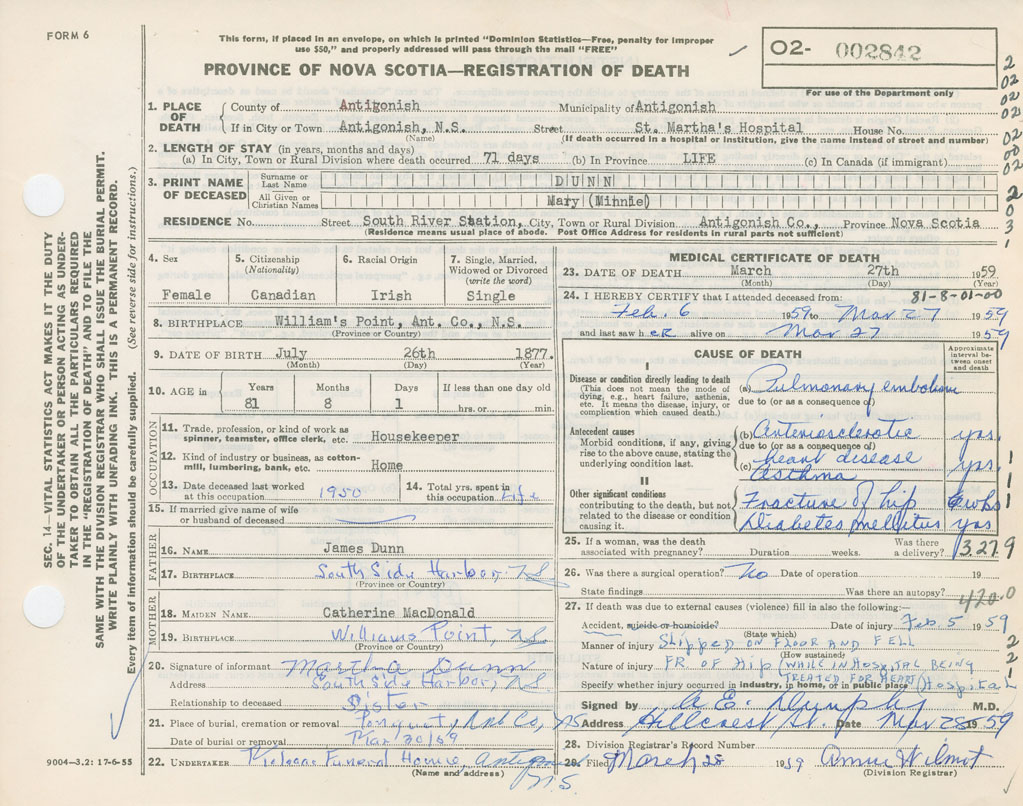 FORM 6
This form, if placed in an envelope, on which is printed "Dominion Statistics—Free, penalty for improper
use $50," and properly addressed will pass through the mail "FREE"
O2- 002842
For use of the Department only
PROVINCE OF NOVA SCOTIA—REGISTRATION OF DEATH
SEC. 14—VITAL STATISTICS ACT MAKES IT THE DUTY
OF THE UNDERTAKER OR PERSON ACTING AS UNDER-
TAKER TO OBTAIN ALL THE PARTICULARS REQUIRED
IN THE "REGISTRATION OF DEATH" AND TO FILE THE
SAME WITH THE DIVISION REGISTRAR WHO SHALL ISSUE THE BURIAL PERMIT.
WRITE PLAINLY WITH UNFADING INK. THIS IS A PERMANENT RECORD.
Every item of information should be carefully supplied. (See reverse side for instructions.)
1. PLACE OF DEATH County of Antigonish Municipality of Antigonish
If in City or Town Antigonish, N.S. Street St. Martha's Hospital House No.
(Name) (If death occurred in a hospital or institution, give the name instead of street and number)
2. LENGTH OF STAY (in years, months and days)
(a) In City, Town or Rural Division where death occurred 71 days (b) In Province LIFE (c) In Canada (if immigrant)
3. PRINT NAME OF DECEASED Surname or Last Name DUNN
All Given or Christian Names Mary (Minnie)
RESIDENCE No. Street South River Station, City, Town or Rural Division Antigonish Co., Province Nova Scotia
(Residence means usual place of abode. Post Office Address for residents in rural parts not sufficient)
2
02
02
02
02
00
02
2
0
3
1
4. Sex Female
5. Citizenship (Nationality) Canadian
6. Racial Origin Irish
7. Single, Married, Widowed or Divorced (write the word) Single
8. BIRTHPLACE William's Point, Ant. Co., N.S.
(Province or Country)
9. DATE OF BIRTH July 26th 1877.
(Month) (Day) (Year)
10. AGE in Years 81 Months 8 Days 1 If less than one day old hrs. or min.
OCCUPATION
11. Trade, profession, or kind of work as spinner, teamster, office clerk, etc. Housekeeper
12. Kind of industry or business, as cotton-mill, lumbering, bank, etc. Home
13. Date deceased last worked at this occupation 1950
14. Total yrs. spent in this occupation Life
15. If married give name of wife or husband of deceased
FATHER
16. NAME James Dunn
17. BIRTHPLACE South Side Harbor, NS
(Province or Country)
MOTHER
18. MAIDEN NAME Catherine MacDonald
19. BIRTHPLACE Williams Point, NS
(Province or Country)
20. Signature of informant Martha Dunn
Address South Side Harbor, NS
Relationship to deceased Sister
21. Place of burial, cremation or removal Pomquet, Ant Co, NS
Date of burial or removal Mar 30/59
22. UNDERTAKER Funeral Home, N.S.
(Name and address)
9004—3.2: 17-6-55
MEDICAL CERTIFICATE OF DEATH
23. DATE OF DEATH March 27th 1959
(Month) (Day) (Year)
24. I HEREBY CERTIFY that I attended deceased from: 81-8-01-00
Feb. 6 1959 to Mar 27 1959
and last saw her alive on Mar 27 1959
CAUSE OF DEATH
Approximate interval between onset and death
I
Disease or condition directly leading to death
(This does not mean the mode of dying, e.g., heart failure, asthenia, etc. It means the disease, injury, or complication which caused death.)
(a) Pulmonary embolism
due to (or as a consequence of)
Antecedent causes
Morbid conditions, if any, giving rise to the above cause, stating the underlying condition last.
(b) Arteriosclerotic yrs.
due to (or as a consequence of)
heart disease
(c) Asthma yrs
II
Other significant conditions
contributing to the death, but not related to the disease or condition causing it.
Fracture of hip 6 wks
Diabetes mellitus yrs
1
1
1
1
25. If a woman, was the death associated with pregnancy? Duration weeks. Was there a delivery?
3.27.9
26. Was there a surgical operation? No Date of operation 19
State findings Was there an autopsy?
420.0
27. If death was due to external causes (violence) fill in also the following:—
Accident, suicide or homicide? Date of injury Feb. 5 1959
(State which)
Manner of injury SLIPPED ON FLOOR AND FELL
(How sustained)
Nature of injury FR. OF Hip (WHILE IN HOSPITAL BEING
TREATED FOR HEART)
Specify whether injury occurred in industry, in home, or in public place (Hospital
2
2
1
Signed by A E. Dunphy M.D.
Address Hillcrest St. Date Mar 28 1959
28. Division Registrar's Record Number
29. Filed March 28 1959 Annie Wilmot
(Division Registrar)